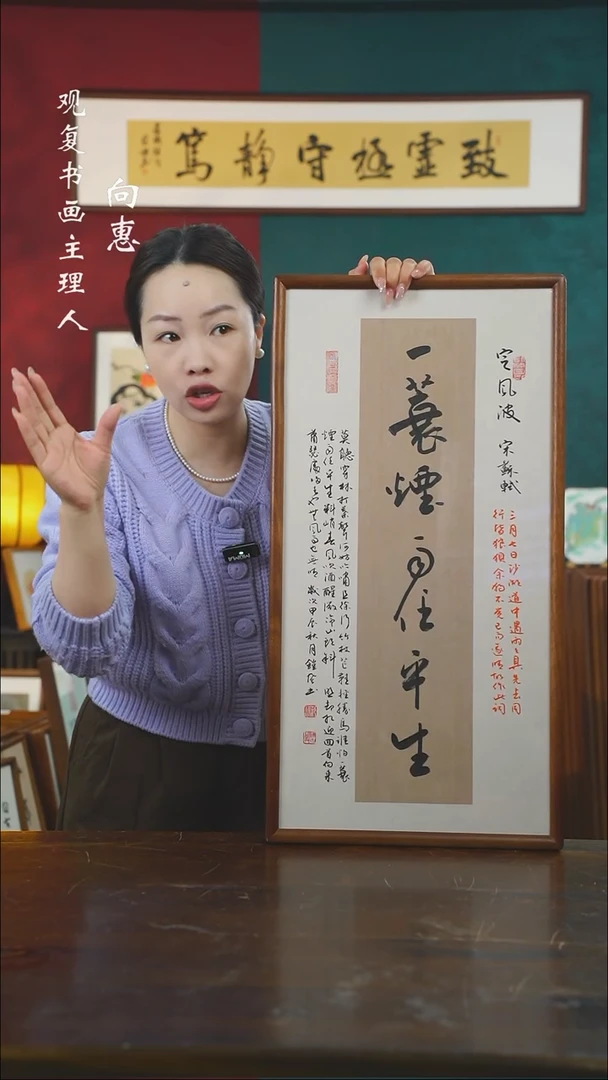 观复书画主理人
向惠
致虚極守静篤
定风波 宋 蘇軾
三月七日沙湖道中遇雨雨具先去同
行皆狼狈余独不觉已而遂晴故作此词
一蓑煙雨任平生
莫聽穿林打葉聲何妨吟嘯且徐行竹杖芒鞋輕勝馬誰怕一蓑
煙雨任平生料峭春風吹酒醒微冷山頭斜照却相迎回首向来
蕭瑟處歸去也無風雨也無晴 歲次甲辰秋月